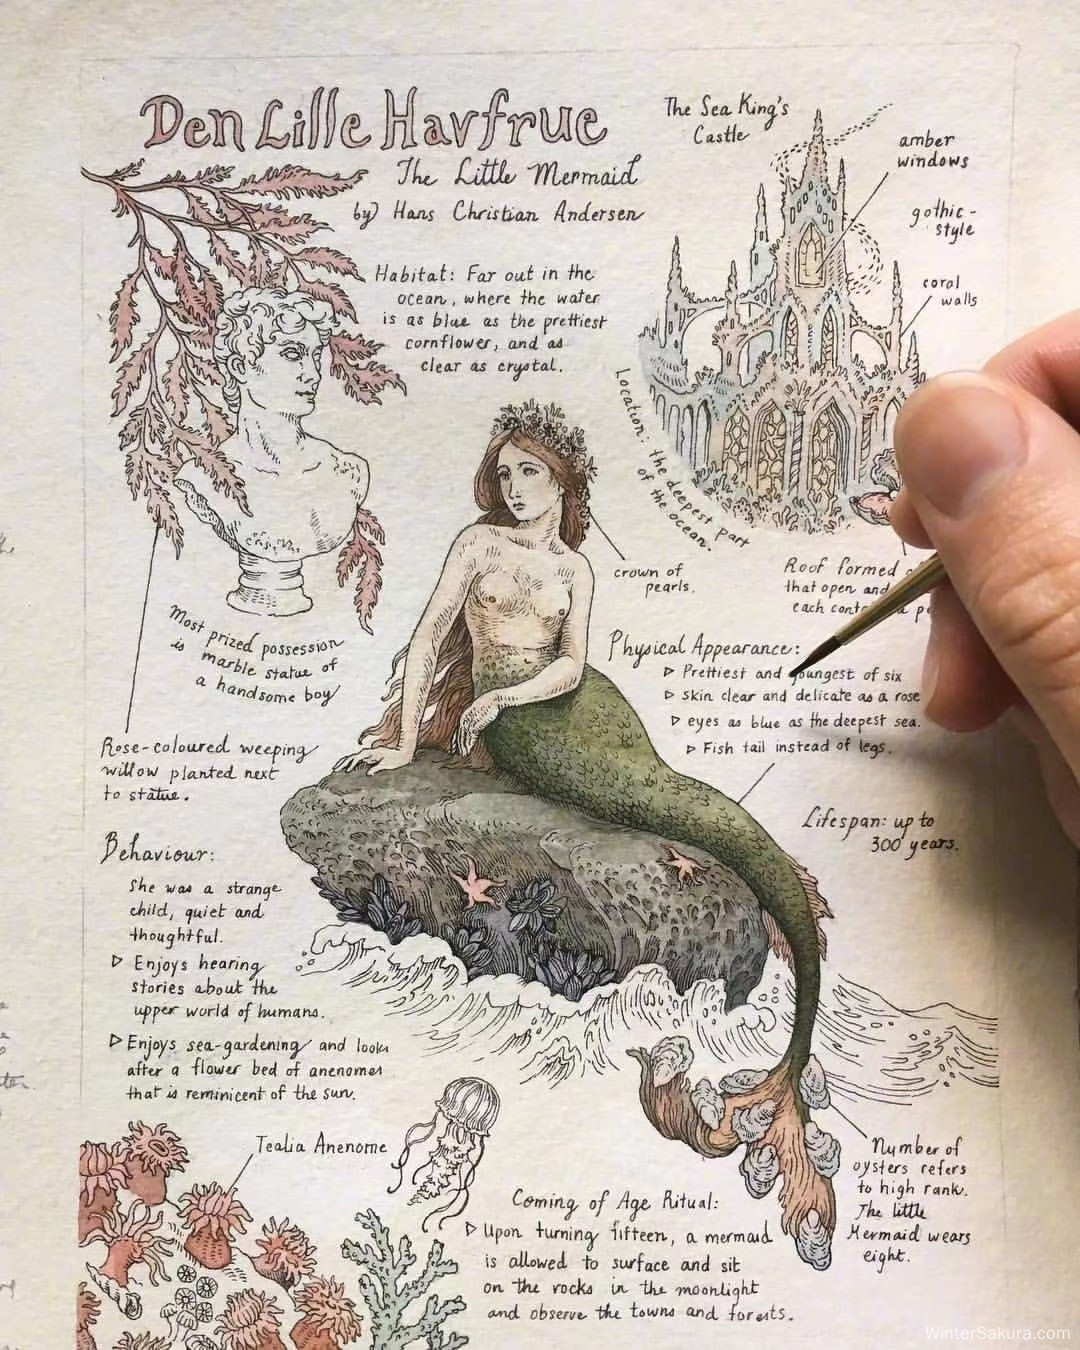 Den Lille Havfrue
The Little Mermaid
by Hans Christian Andersen
Habitat: Far out in the
ocean, where the water
is as blue as the prettiest
cornflower, and as
clear as crystal.
The Sea King's
Castle
amber
windows
gothic-
style
coral
walls
Location: the deepest part
of the ocean.
crown of
pearls.
Roof formed
that open and
each
Most prized possession
is marble statue of
a handsome boy
Rose-coloured weeping
willow planted next
to statue.
Physical Appearance:
▷ Prettiest and youngest of six
▷ skin clear and delicate as a rose
▷ eyes as blue as the deepest sea.
▷ Fish tail instead of legs.
Lifespan: up to
300 years.
Behaviour:
She was a strange
child, quiet and
thoughtful.
▷ Enjoys hearing
stories about the
upper world of humans.
▷ Enjoys sea-gardening and looks
after a flower bed of anenomes
that is reminicent of the sun.
Tealia Anenome
Coming of Age Ritual:
▷ Upon turning fifteen, a mermaid
is allowed to surface and sit
on the rocks in the moonlight
and observe the towns and forests.
Number of
oysters refers
to high rank.
The little
Mermaid wears
eight.
WinterSakura.com